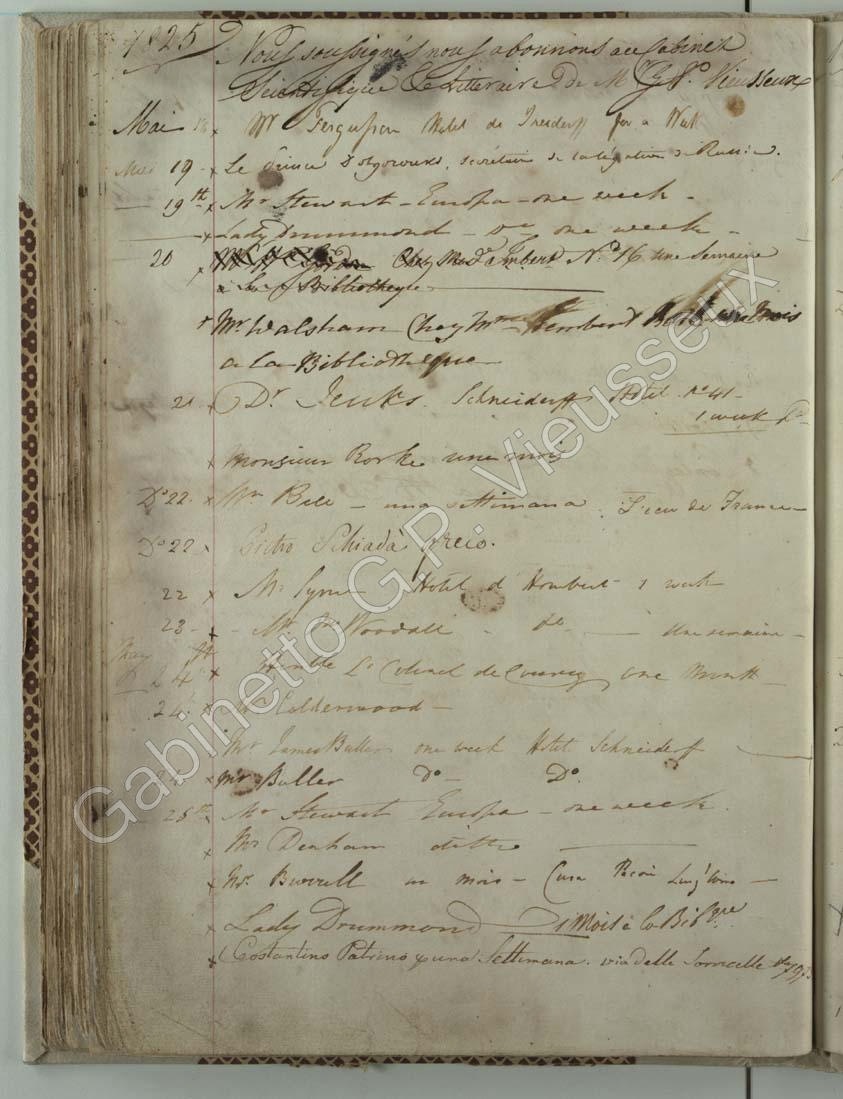 1825 Nous soussignés nous abonnons au Cabinet
Scientifique & Litteraire de M G. P. Vieusseux
Mai 18 x Mr Fergusson Hotel de Sneiderff for a Week
Mai 19 - Le Prince Dolgorouki, secrétaire de la légation de Russie.
19th x Mr Stewart - Europa - one week -
x Lady Drummond - do one week -
20 x Chez Mad Lambert No 16 une Semaine
a la Bibliotheque
x Mr Walsham Chez Mme Lembert un Mois
a la Bibliothèque
21 x Dr Jenks. Schneiderffs Hotel No 41 -
1 week
x Monsieur Rorke une mois
Do 22. x Mr Bell - una settimana. de France -
Do 22 x Schiadà greco.
22 x Mr Hotel d' Hombert - 1 week
23 - x Woodall - do - Une semaine -
May 24 x Honble Lt Colonel de Courcy one Month -
24 x Mr Calderwood -
Mr James Buller one week Hotel Schneiderf
24 x Mr Buller Do - Do.
25th x Mr Stewart Europa - one week.
x Mr Denham ditto
x Mr Burrell un mois - Casa Lung'Arno -
x Lady Drummond 1 Mois à la Bibque
x Costantino Patrino p una Settimana. via delle
Gabinetto G.P. Vieusseux